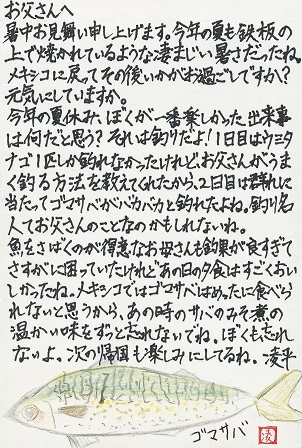 お父さんへ
暑中お見舞い申し上げます。今年の夏も鉄板の
上で焼かれているような凄まじい暑さだったね。
メキシコに戻ってその後いかがお過ごしですか?
元気にしていますか。
今年の夏休み、ぼくが一番楽しかった出来事
は何だと思う?それは釣りだよ!1日目はウミタ
ナゴ1匹しか釣れなかったけれど、お父さんがうま
く釣る方法を教えてくれたから、2日目は群れに
当たってゴマサバがバカバカと釣れたよね。釣り名
人てお父さんのことなのかもしれないね。
魚をさばくのが得意なお母さんも釣果が良すぎて
さすがに困っていたけれどあの日の夕食はすごくおい
しかったね。メキシコではゴマサバはめったに食べら
れないと思うから、あの時のサバのみそ煮の
温かい味をずっと忘れないでね。ぼくも忘れ
ないよ。次の帰国も楽しみにしてるね。凌平
ゴマサバ